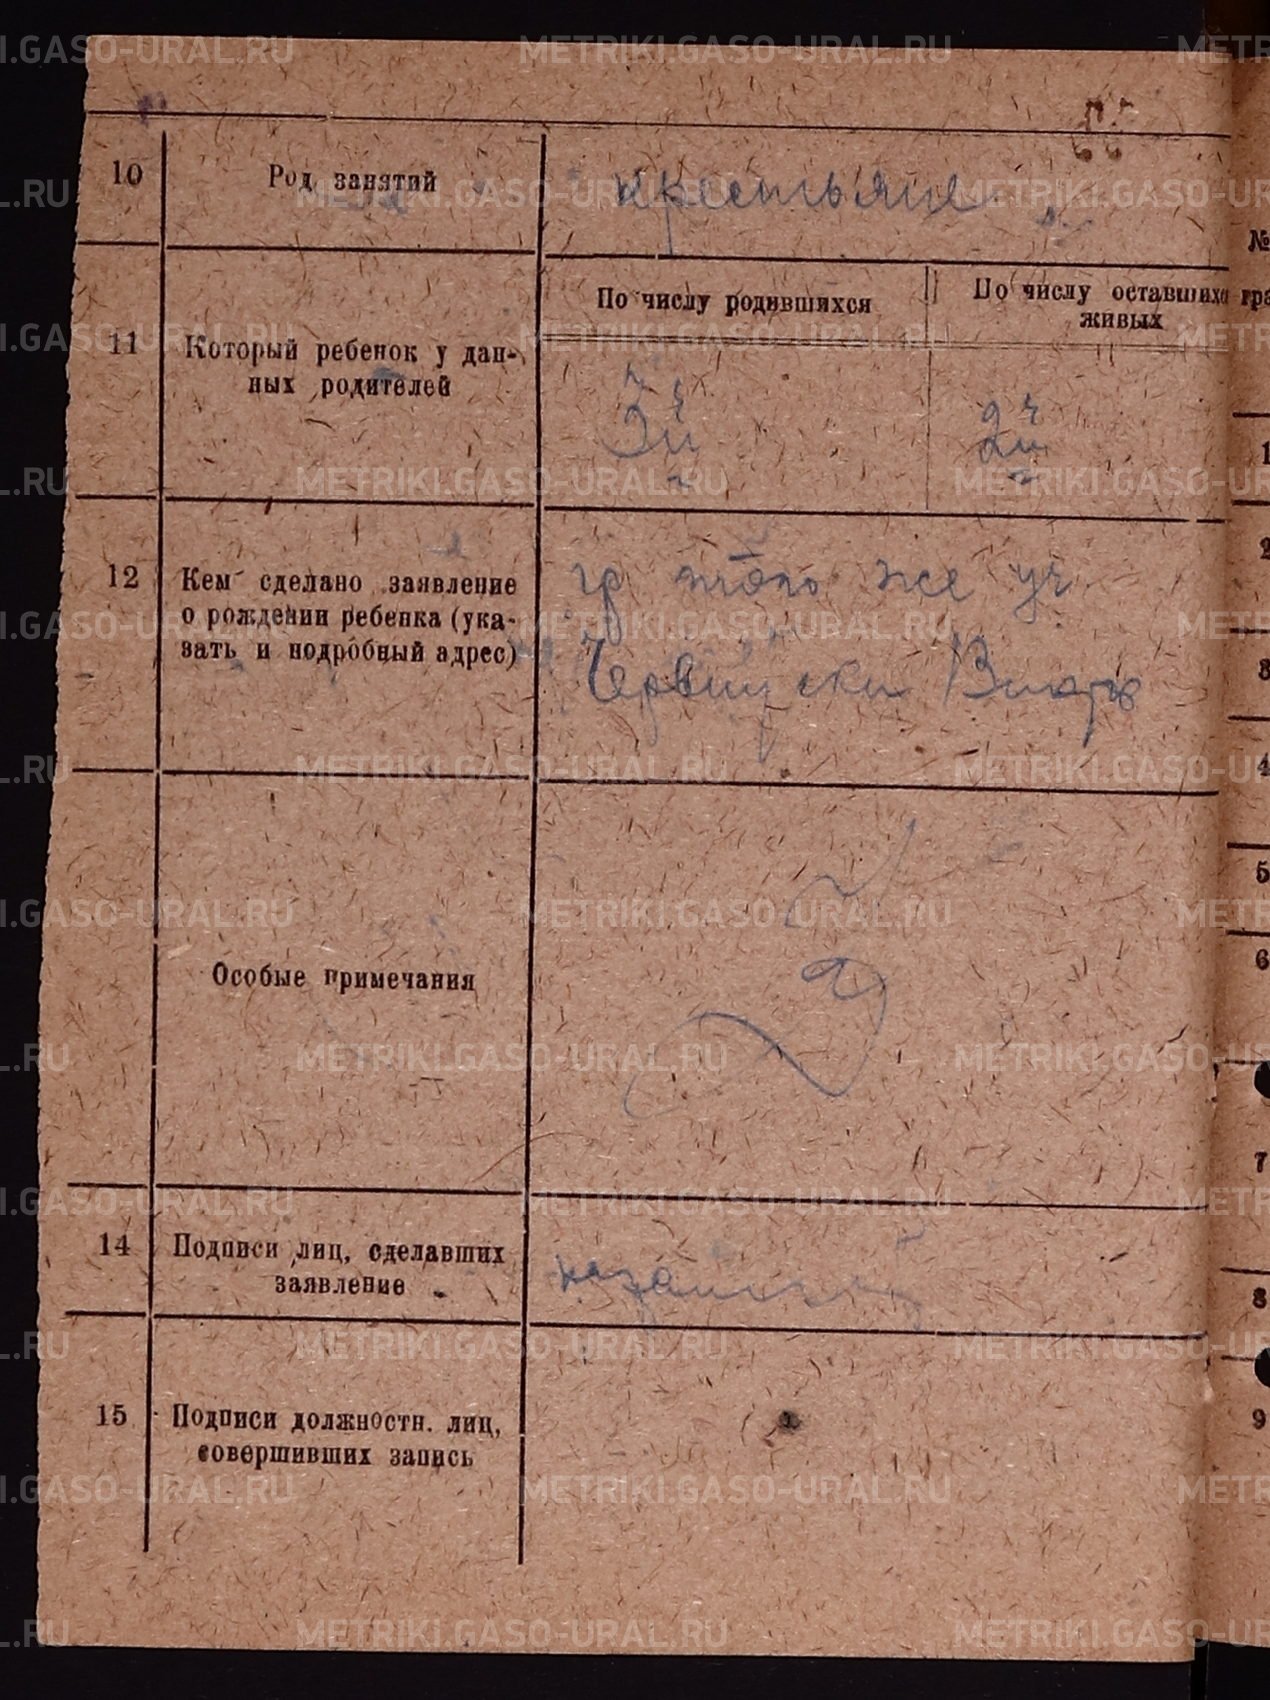 10 Род занятий крестьяне
11 Который ребенок у дан-
ных родителей
По числу родившихся
По числу оставшихс
живых
3й
2й
12 Кем сделано заявление
о рождении ребенка (ука-
зать и подробный адрес)
гр того же уч
Червински
Особые примечания
14 Подписи лиц, сделавших
заявление
15 Подписи должностн. лиц,
совершивших запись
№
гра
1
2
3
4
5
6
7
8
9
METRIKI.GASO-URAL.RU